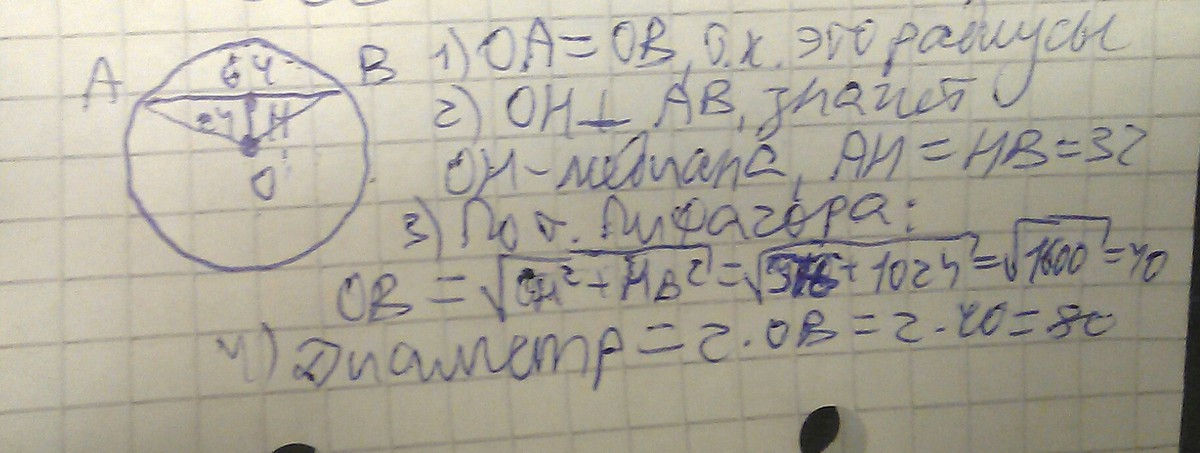 A 64 B
24 H
O
1) OA = OB, т.к. это радиусы
2) OH ⊥ AB, значит
OH - медиана, AH = HB = 32
3) По т. Пифагора:
OB = √OH² + HB² = √576 + 1024 = √1600 = 40
4) Диаметр = 2 · OB = 2 · 40 = 80